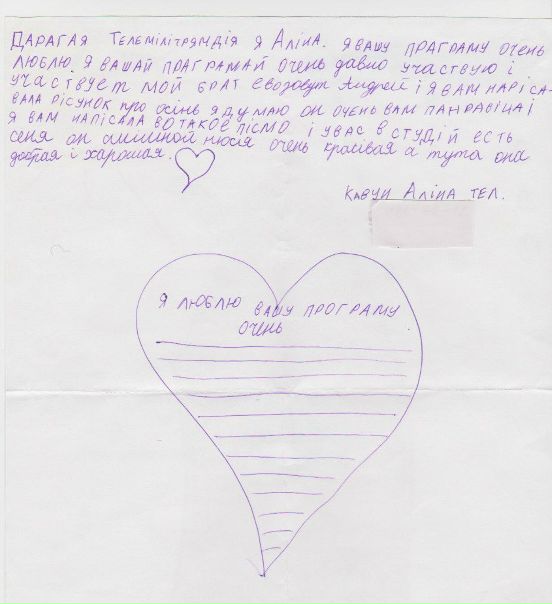 ДАРАГАЯ ТЕЛЕМІЛІТРЯМДІЯ Я АЛІНА. Я ВАШУ ПРАГРАМУ ОЧЕНЬ
ЛЮБЛЮ. Я ВАШАЙ ПРАГРАМАЙ ОЧЕНЬ ДАВНО УЧАСТВУЮ І
УЧАСТВУЕТ МОЙ БРАТ ЕВОЗОВУТ Андрей І Я ВАМ НАРІСА-
ВАЛА РІСУНОК ПРО ОСІНЬ Я ДУМАЮ ОН ОЧЕНЬ ВАМ ПАНРАВІЦА І
Я ВАМ НАПІСАЛА ВОТАКОЕ ПІСМО І УВАС В СТУДІЙ ЕСТЬ
сеня он смишной нюся очень краивая а тута она
добрая і харошая.
КАВУН АЛІНА ТЕЛ.
Я ЛЮБЛЮ ВАШУ ПРОГРАМУ
ОЧЕНЬ